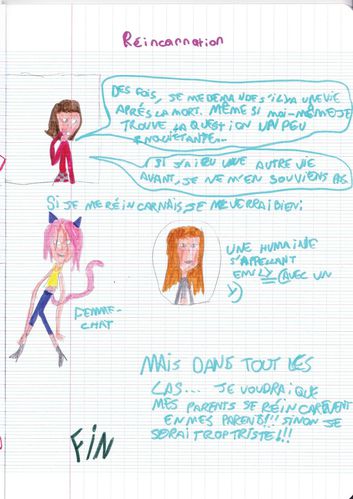 Réincarnation
DES FOIS, JE ME DEMANDE S'IL Y A UNE VIE
APRÉS LA MORT. MÊME SI MOI-MÊME JE
TROUVE LA QUESTION UN PEU
INQUIÉTANTE...
SI J'AI EU UNE AUTRE VIE
AVANT, JE NE M'EN SOUVIENS PAS.
SI JE ME RÉINCARNAIS, JE ME VERRAI BIEN:
UNE HUMAINE
S'APPELLANT
EMILY (AVEC UN
Y)
FEMME-
CHAT
MAIS DANS TOUT LES
CAS... JE VOUDRAI QUE
MES PARENTS SE RÉINCARNENT
EN MES PARENTS!!! SINON JE
SERAI TROP TRISTE!!!
FIN